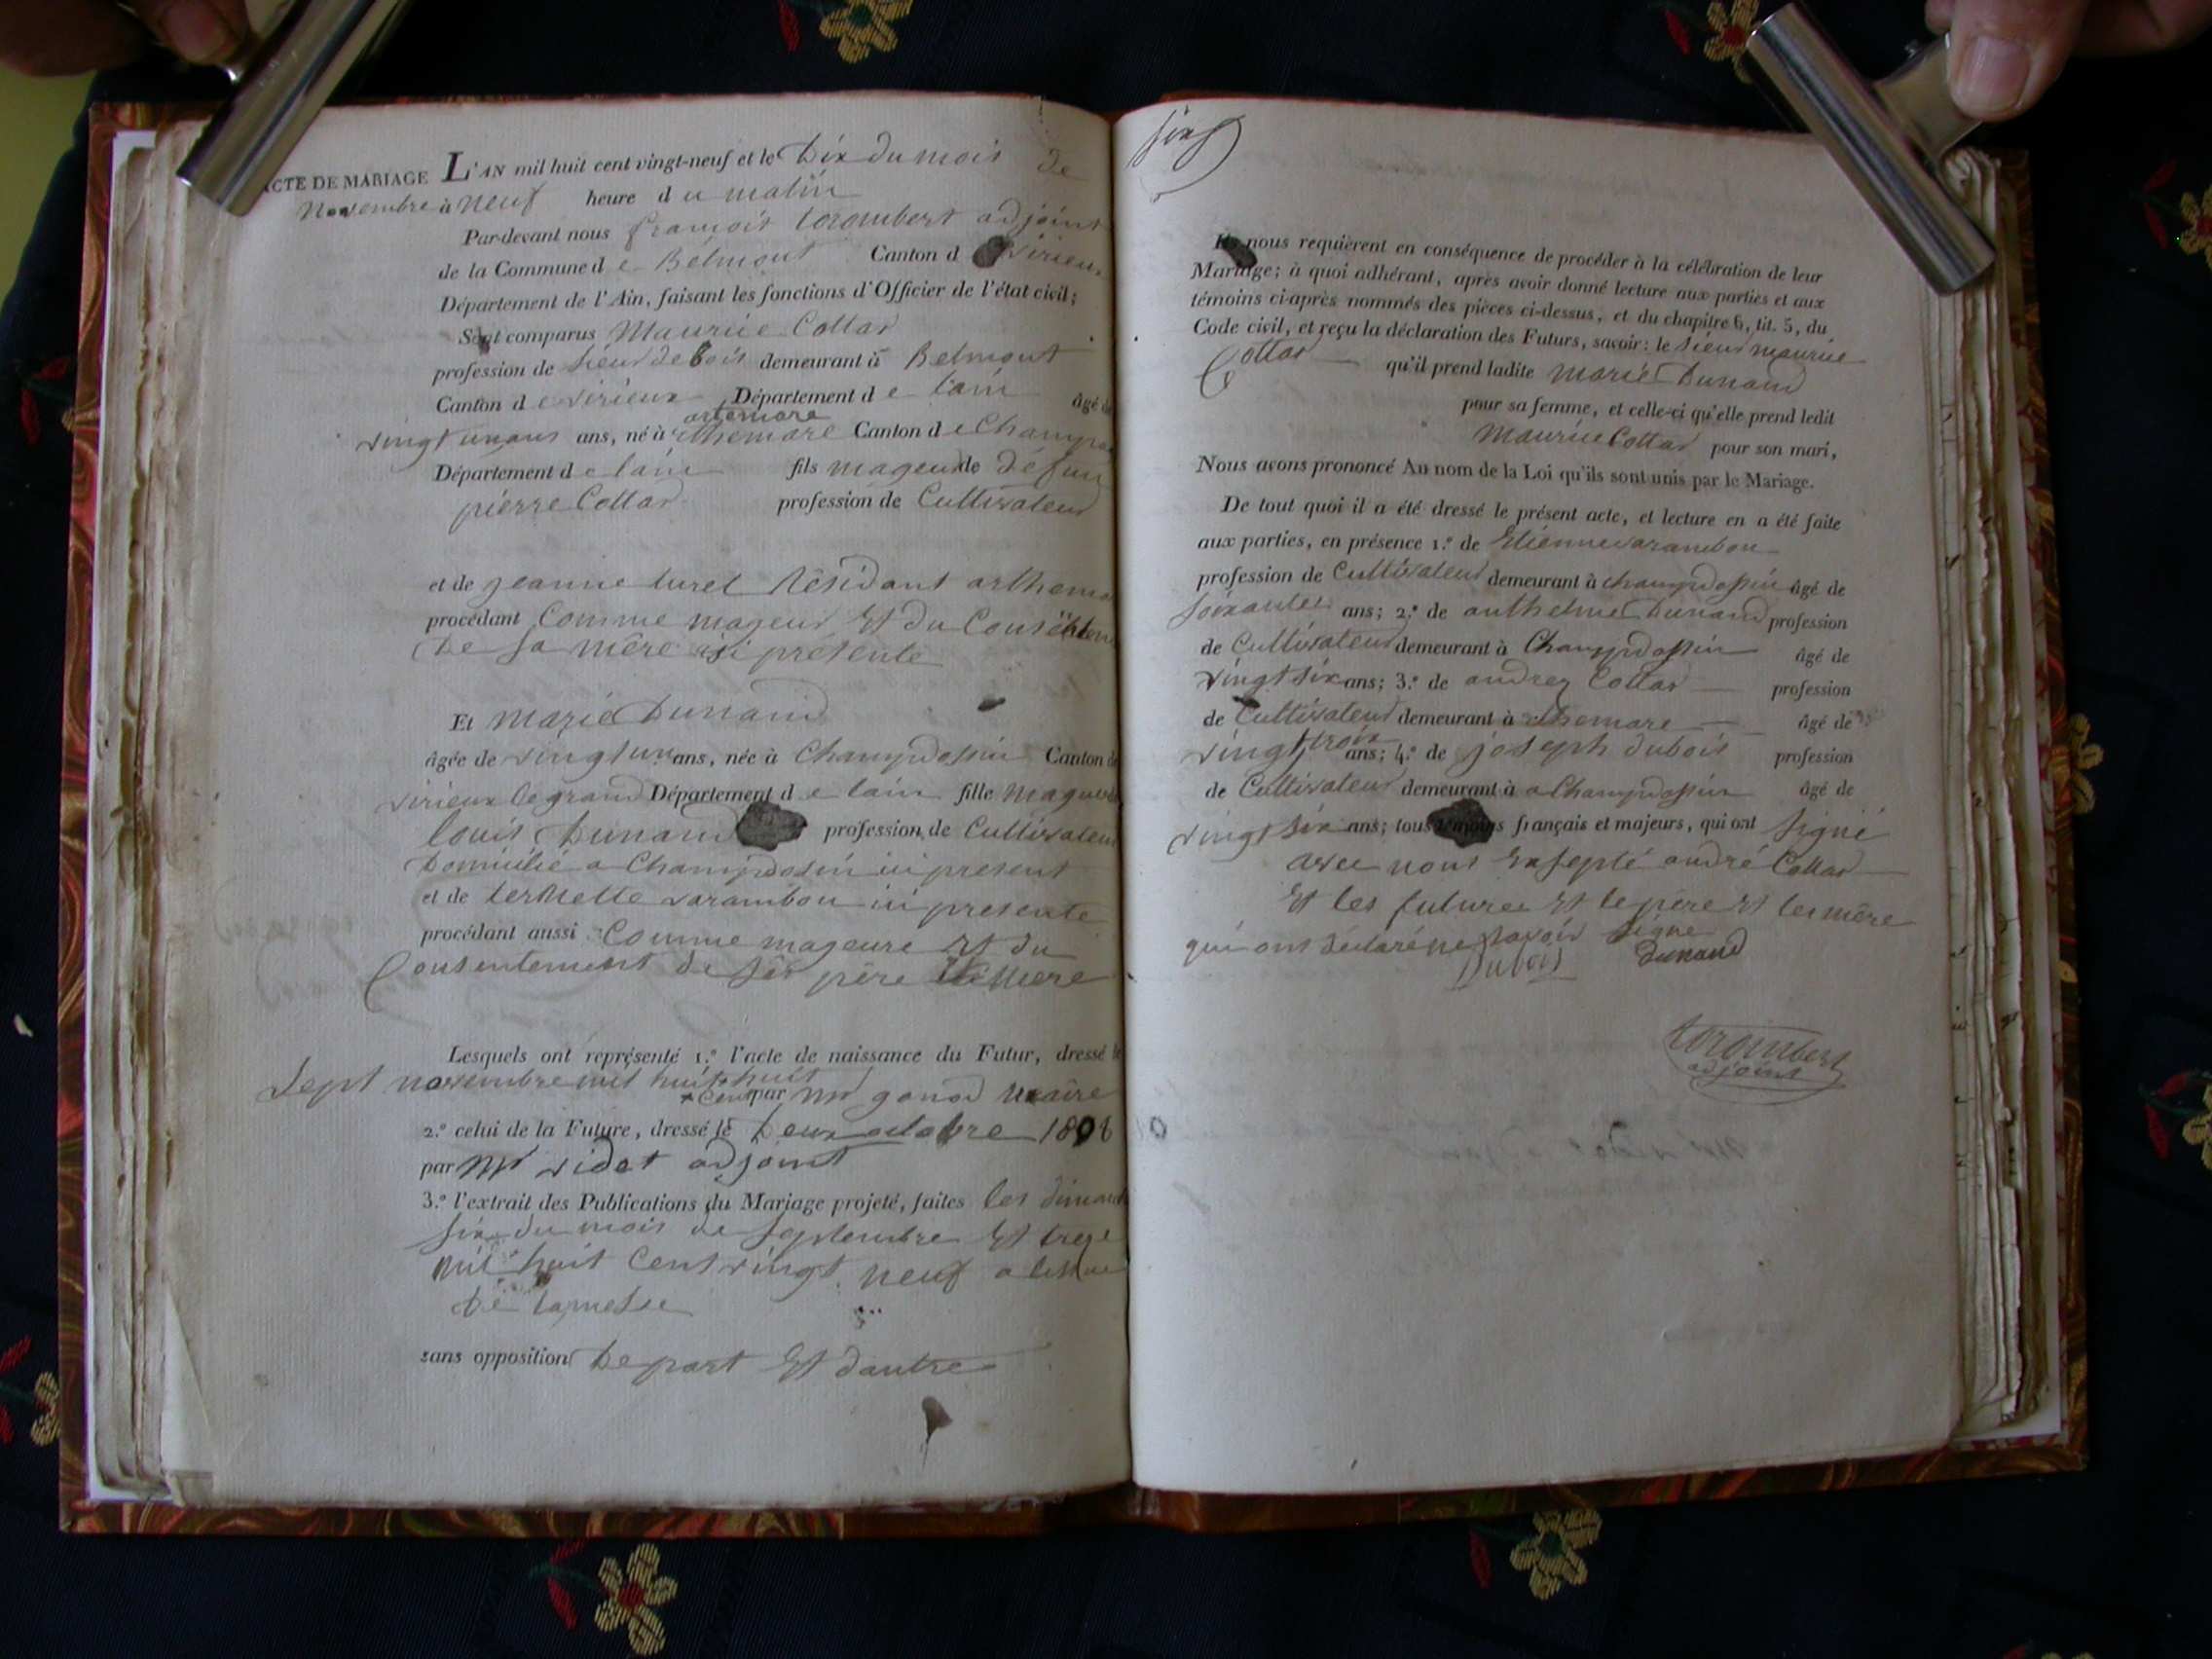 ACTE DE MARIAGE L'AN mil huit cent vingt-neuf et le Dix du mois de
Novembre à neuf heure du matin
Par-devant nous françois Corombert adjoint
de la Commune de Belmont Canton de virieu
Département de l'Ain, faisant les fonctions d'Officier de l'état civil;
Sont comparus Maurice Collar
profession de sieur de bois demeurant à Belmont
Canton de virieux Département de lain âgé de
vingt unans ans, né à artemare Canton de Champag
Département de lain fils mageur de défun
pierre Collar profession de Cultivateur
et de jeanne Résidant arthema
procédant comme mageur Et du
De sa mère isi présente
Et marie Dunand
âgée de vingt un ans, née à Champdossin Canton de
virieux le grand Département de lain fille mageure
louis Dunand profession de Cultivateur
Domicilié a Champdosin ici présent
et de varambon ici presente
procédant aussi Comme mageure Et du
Consentement de ses père Et mère
Lesquels ont représenté 1.º l'acte de naissance du Futur, dressé le
Sept novembre mil huit huit
+ Cent par mr gonod maire
2.º celui de la Future, dressé le Deux octobre 1808
par Mr videt adjoint
3.º l'extrait des Publications du Mariage projeté, faites les dimanch
six du mois de septembre Et treze
mil huit Cent vingt neuf a lissue
De la messe
sans opposition De part Et dautre
Ils nous requièrent en conséquence de procéder à la célébration de leur
Mariage; à quoi adhérant, après avoir donné lecture aux parties et aux
témoins ci-après nommés des pièces ci-dessus, et du chapitre 6, tit. 5, du
Code civil, et reçu la déclaration des Futurs, savoir: le sieur maurice
Collar qu'il prend ladite marie Dunand
pour sa femme, et celle-ci qu'elle prend ledit
maurice Collar pour son mari,
Nous avons prononcé Au nom de la Loi qu'ils sont unis par le Mariage.
De tout quoi il a été dressé le présent acte, et lecture en a été faite
aux parties, en présence 1.º de Etienne varambon
profession de Cultivateur demeurant à champdossin âgé de
soixante ans; 2.º de anthelme Dunand profession
de Cultivateur demeurant à Champdossin âgé de
vingt six ans; 3.º de andrez Collar profession
de Cultivateur demeurant à âgé de
vingt trois ans; 4.º de joseph dubois profession
de Cultivateur demeurant à a Champdossin âgé de
vingt six ans; tous témoins français et majeurs, qui ont signé
avec nous Exsepté andré Collar
Et les future Et le père Et les mère
qui ont déclaré ne savoir signé
Dubois Dunand
Corombert
adjoint